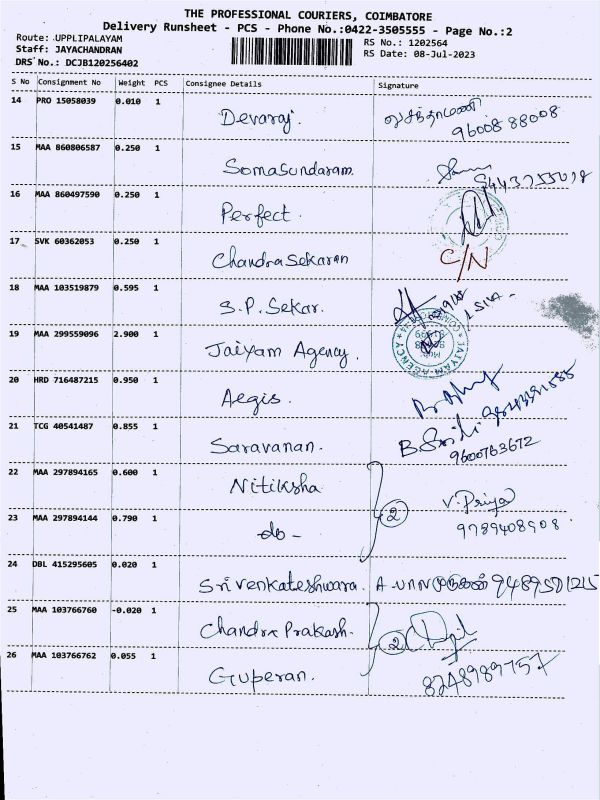 THE PROFESSIONAL COURIERS, COIMBATORE
Delivery Runsheet - PCS - Phone No.:0422-3505555 - Page No.:2
Route: UPPLIPALAYAM
Staff: JAYACHANDRAN
DRS No.: DCJB120256402
RS No.: 1202564
RS Date: 08-Jul-2023
S No Consignment No Weight PCS Consignee Details Signature
14 PRO 15058039 0.010 1 Devaraj. வசந்தாமணி
96008 88008
15 MAA 860806587 0.250 1 Somasundaram.
16 MAA 860497590 0.250 1 Perfect.
17 SVK 60362053 0.250 1 Chandrasekaran C/N
18 MAA 103519879 0.595 1 S.P. Sekar.
19 MAA 299559096 2.900 1 Jaiyam Agency. JAIYAM AGENCY
20 HRD 716487215 0.950 1 Aegis.
21 TCG 40541487 0.855 1 Saravanan.
9600763672
22 MAA 297894165 0.600 1 Nitiksha
23 MAA 297894144 0.790 1 do - 2 V. Priya
9789408908
24 DBL 415295605 0.020 1 Sri Venkateshwara.
25 MAA 103766760 -0.020 1 Chandra Prakash. 2
26 MAA 103766762 0.055 1 Guperan. 8248989757